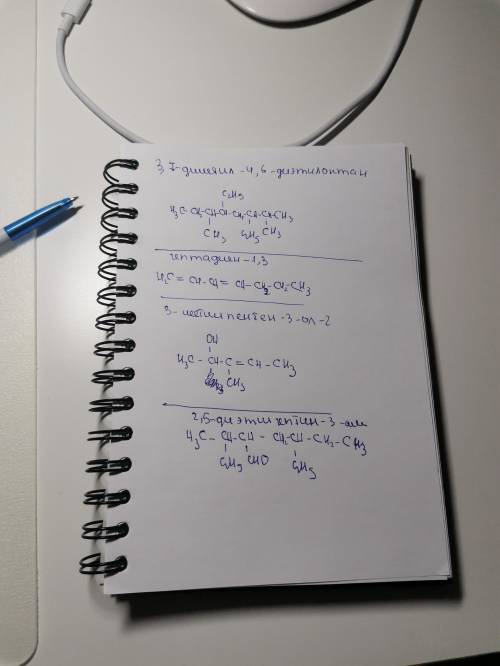 3,7-диметил-4,6-диэтилоктан
C₂H₅
H₃C-CH₂-CH-CH-CH₂-CH-CH-CH₃
CH₃ C₂H₅ CH₃
гептадиен-1,3
H₂C=CH-CH=CH-CH₂-CH₂-CH₃
3-метилпентен-3-ол-2
OH
H₃C-CH-C=CH-CH₃
CH₃
2,5-диэтилгептин-3-аль
H₃C-CH-CH-CH-CH-CH₂-CH₃
C₂H₅ CHO C₂H₅